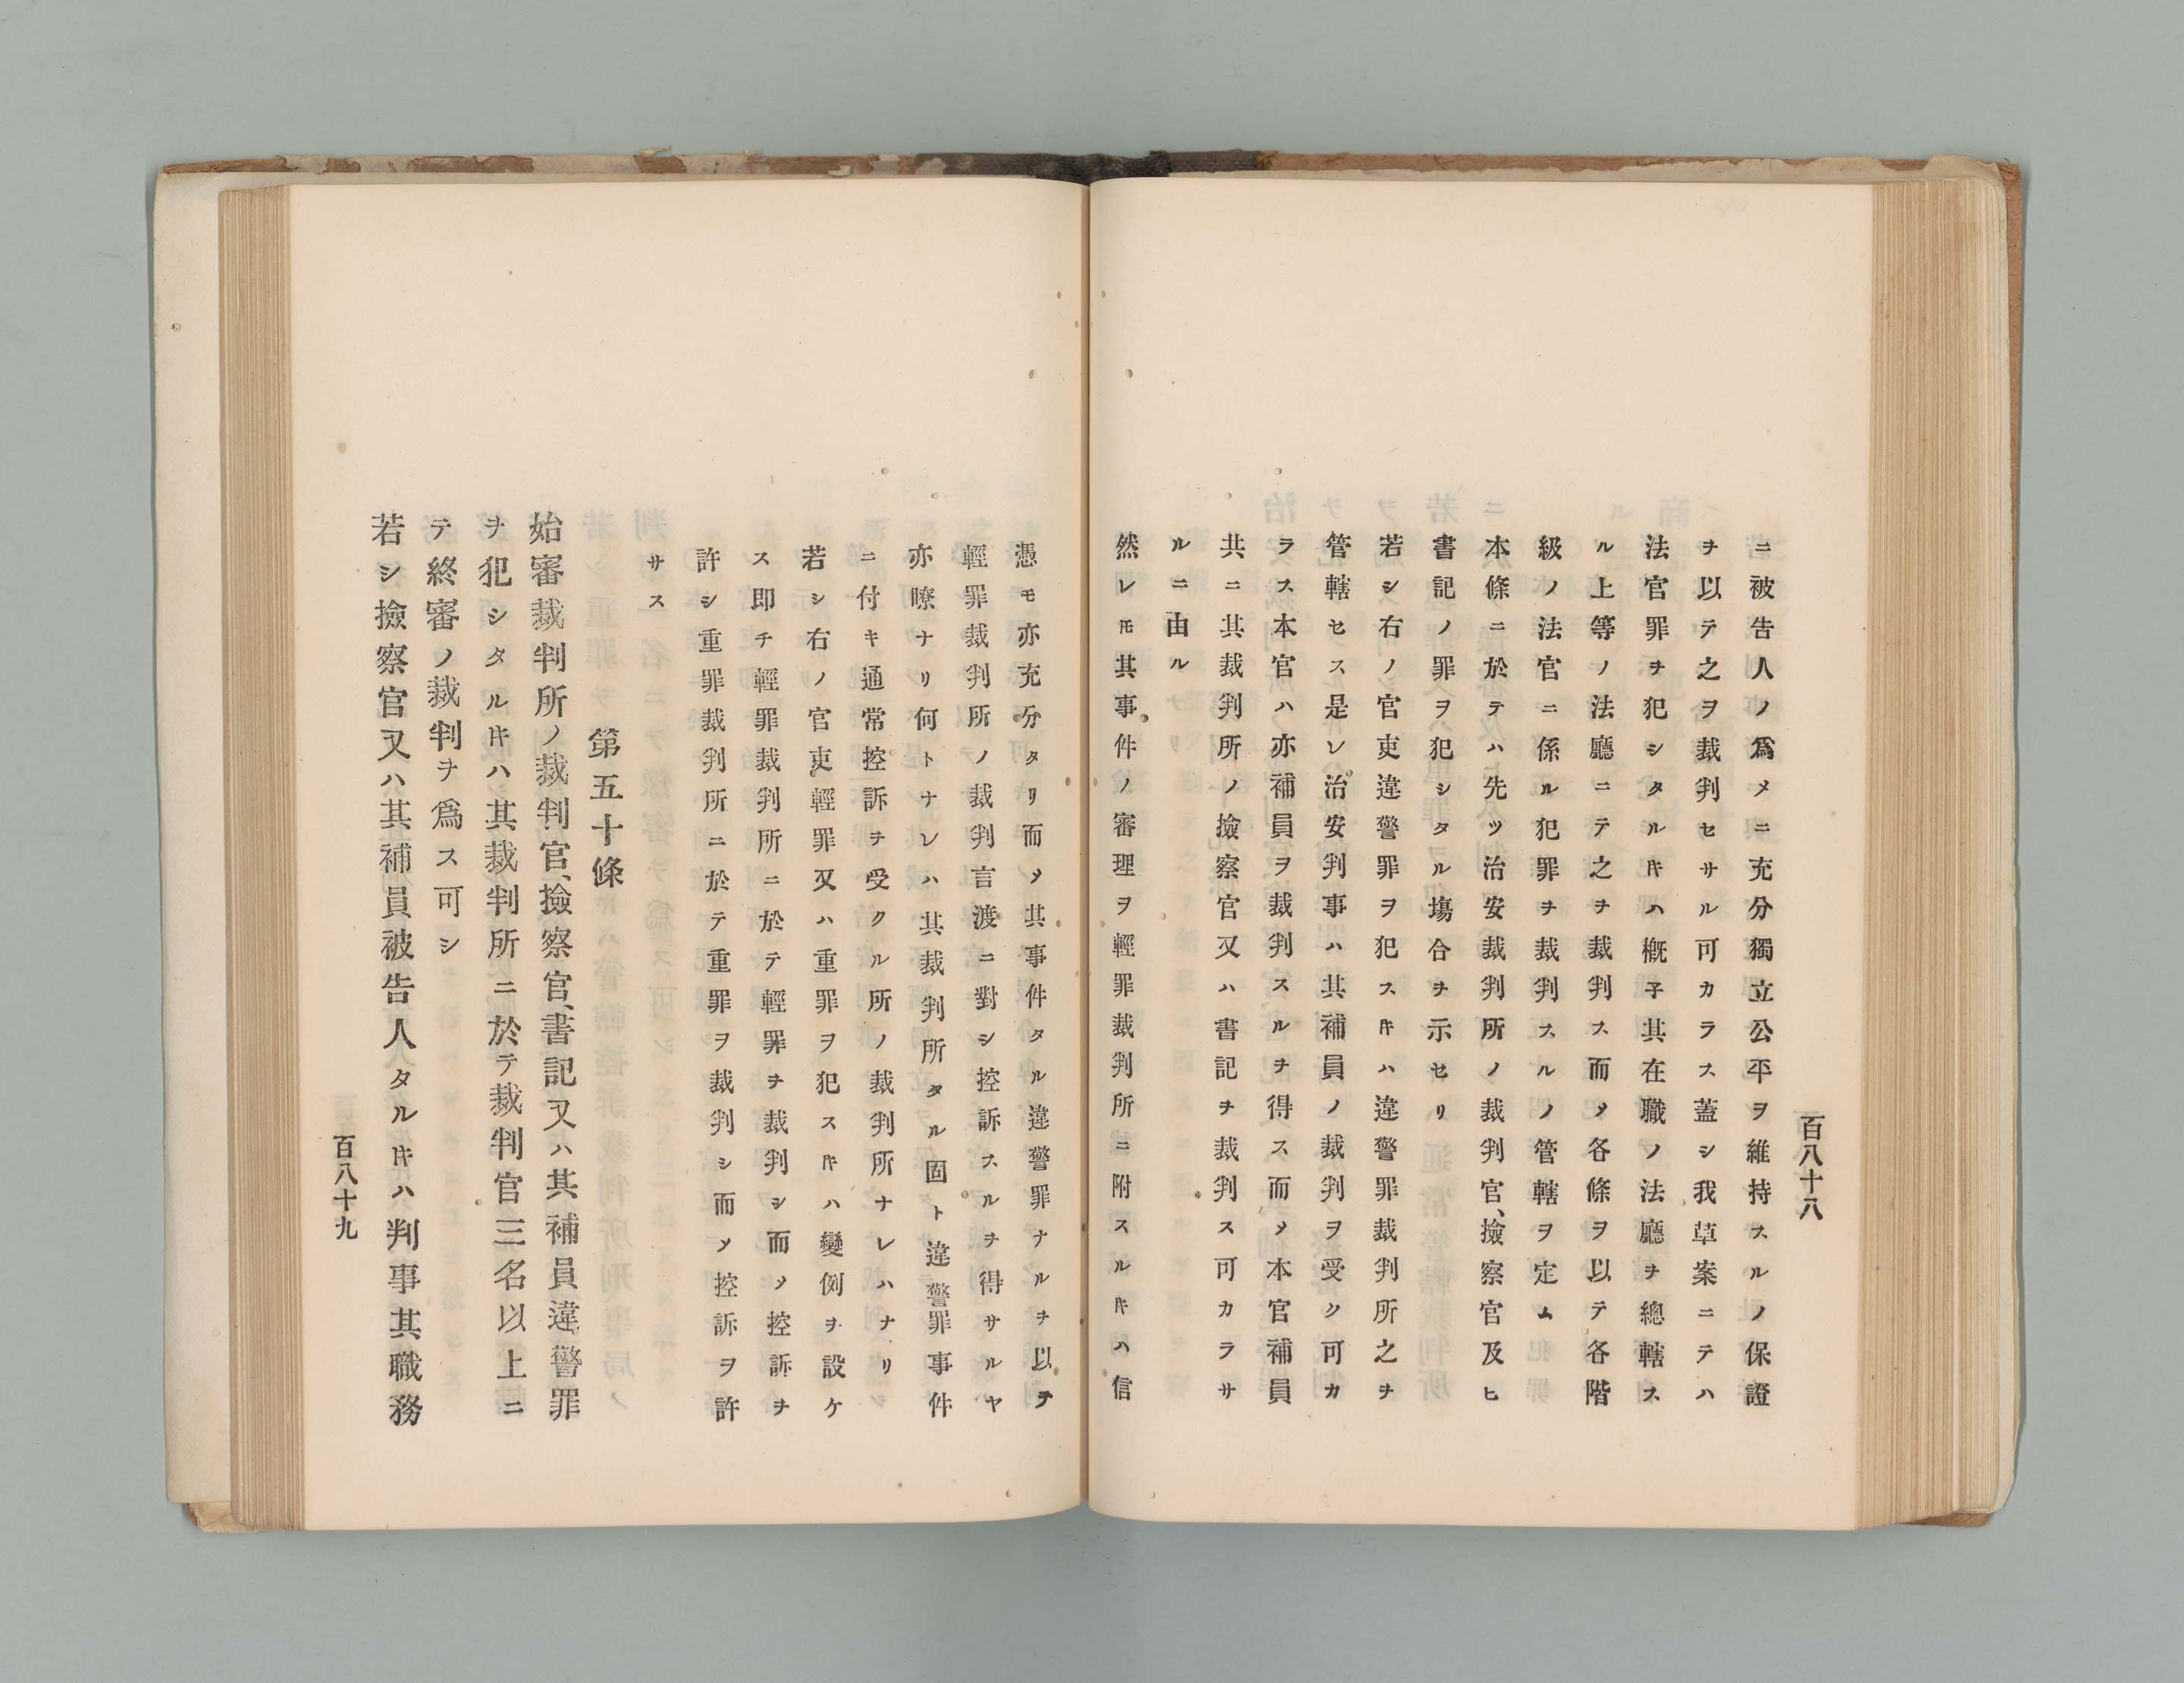 百八十八
ニ被告人ノ爲メニ充分獨立公平ヲ維持スルノ保證
ヲ以テ之ヲ裁判セサル可カラス蓋シ我草案ニテハ
法官罪ヲ犯シタルヿキハ槪子其在職ノ法廳ヲ總轄ス
ル上等ノ法廳ニテ之ヲ裁判ス而〆各條ヲ以テ各階
級ノ法官ニ係ル犯罪ヲ裁判スルノ管轄ヲ定ム
本條ニ於テハ先ツ治安裁判所ノ裁判官、撿察官及ヒ
書記ノ罪ヲ犯シタル塲合ヲ示セリ
若シ右ノ官吏違警罪ヲ犯スキハ違警罪裁判所之ヲ
管轄セス是レ治安判事ハ其補員ノ裁判ヲ受ク可カ
ラス本官ハ亦補員ヲ裁判スルヲ得ス而〆本官補員
共ニ其裁判所ノ撿察官又ハ書記ヲ裁判ス可カラサ
ルニ由ル
然レ𪜈其事件ノ審理ヲ輕罪裁判所ニ附スルキハ信
憑モ亦充分タリ而〆其事件タル違警罪ナルヲ以テ
輕罪裁判所ノ裁判言渡ニ對シ控訴スルヲ得サルヤ
亦瞭ナリ何トナレハ其裁判所タル固ト違警罪事件
ニ付キ通常控訴ヲ受クル所ノ裁判所ナレハナリ
若シ右ノ官吏輕罪又ハ重罪ヲ犯スキハ變例ヲ設ケ
ス即チ輕罪裁判所ニ於テ輕罪ヲ裁判シ而〆控訴ヲ
許シ重罪裁判所ニ於テ重罪ヲ裁判シ而〆控訴ヲ許
サス
第五十條
始審裁判所ノ裁判官、撿察官、書記又ハ其補員違警罪
ヲ犯シタルキハ其裁判所ニ於テ裁判官三名以上ニ
テ終審ノ裁判ヲ爲ス可シ
若シ撿察官又ハ其補員被告人タルキハ判事其職務
百八十九